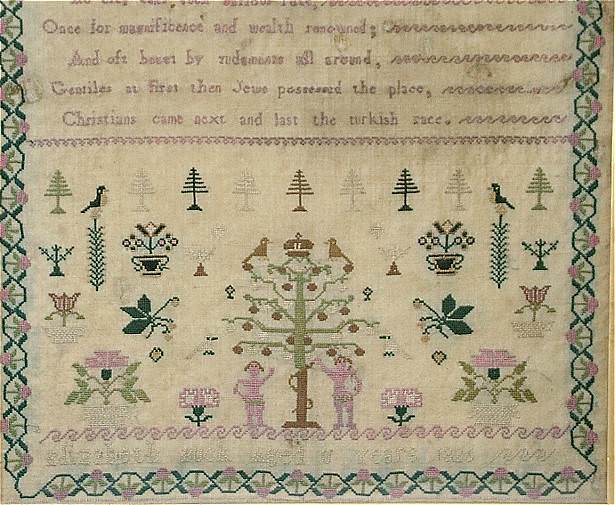 Once for magnificence and wealth renowned;
And oft beset by all around,
Gentiles at first then Jews possessed the place,
Christians came next and last the turkish race.
Elizabeth aged years